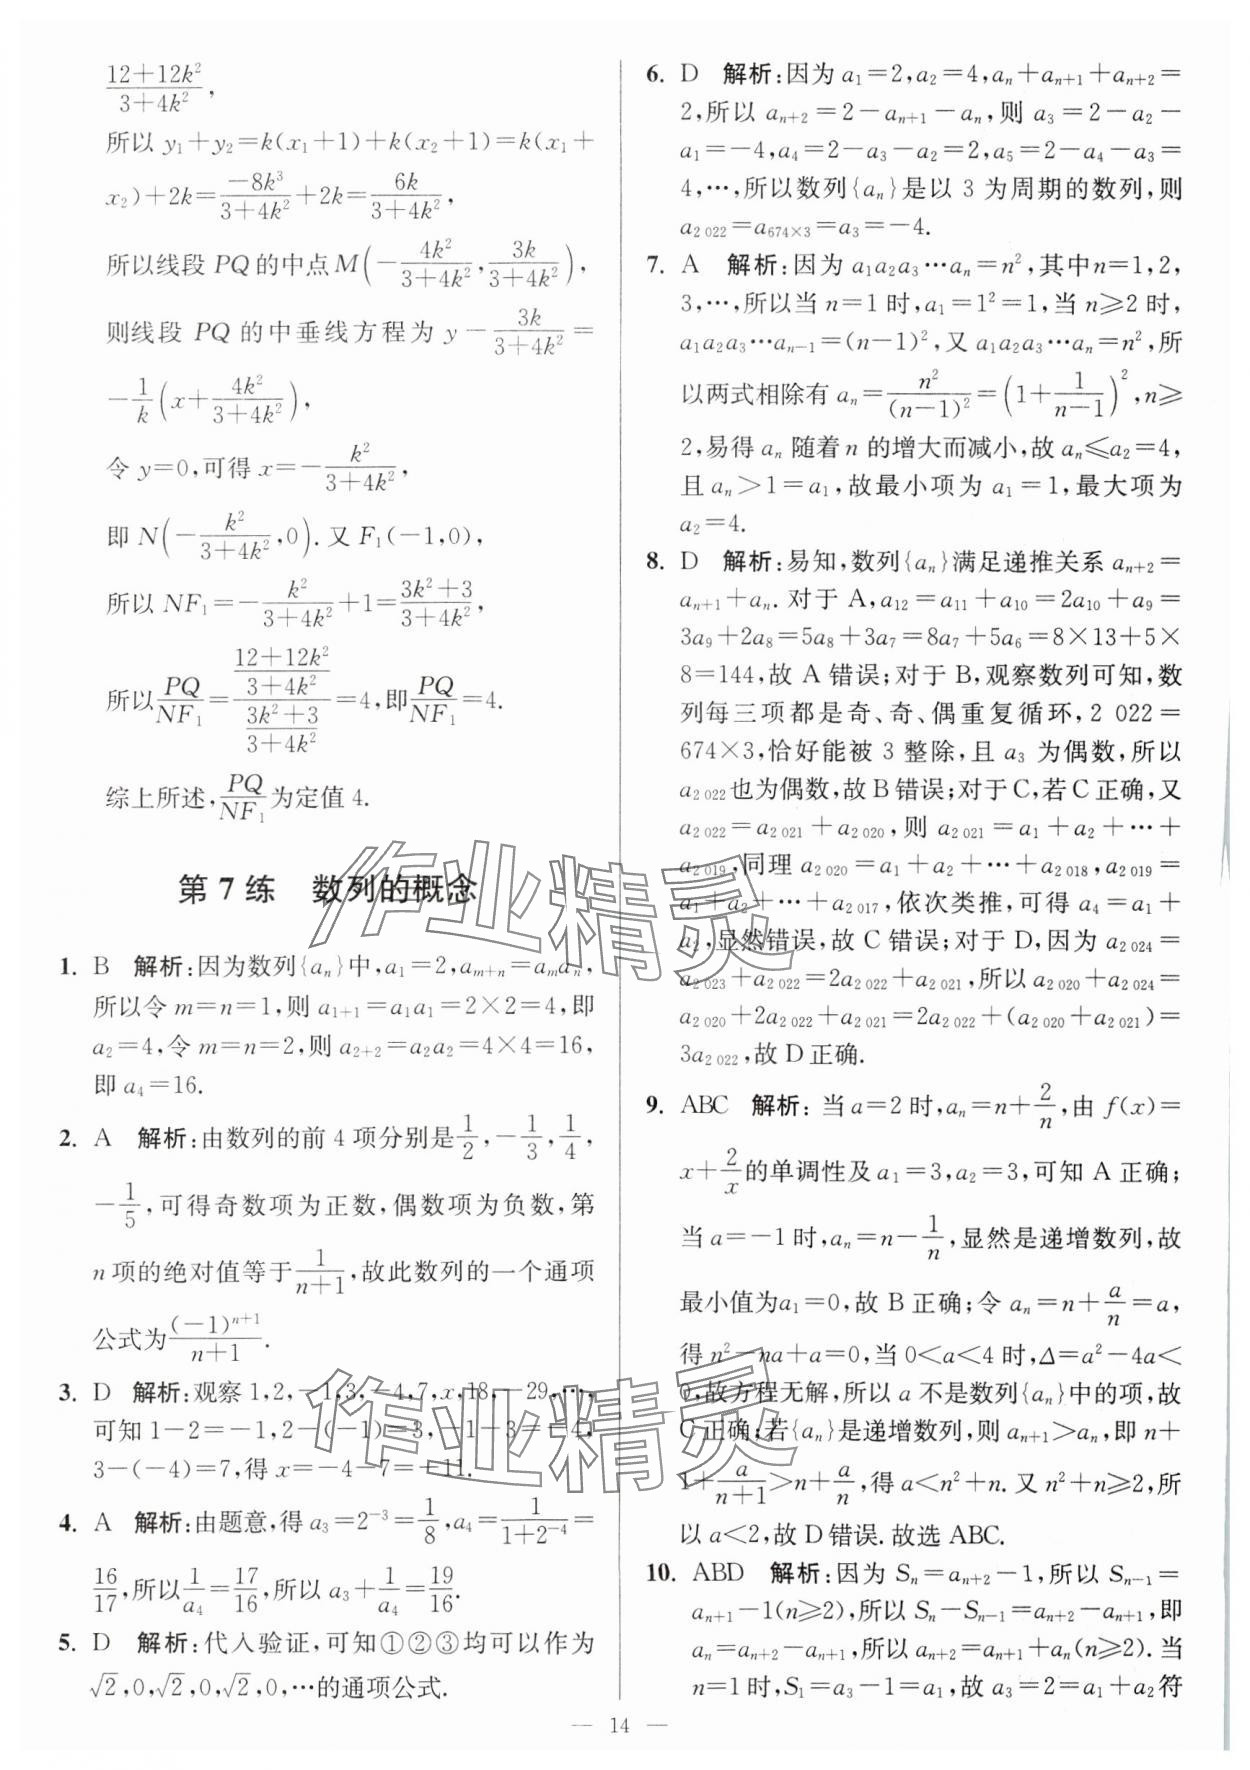 12+12k²/3+4k²,
所以 y₁+y₂=k(x₁+1)+k(x₂+1)=k(x₁+
x₂)+2k=-8k³/3+4k²+2k=6k/3+4k²,
所以线段 PQ 的中点 M(-4k²/3+4k²,3k/3+4k²),
则线段 PQ 的中垂线方程为 y-3k/3+4k²=
-1/k(x+4k²/3+4k²),
令 y=0,可得 x=-k²/3+4k²,
即 N(-k²/3+4k²,0).又 F₁(-1,0),
所以 NF₁=-k²/3+4k²+1=3k²+3/3+4k²,
所以PQ/NF₁=(12+12k²/3+4k²)/(3k²+3/3+4k²)=4,即PQ/NF₁=4.
综上所述,PQ/NF₁为定值 4.
第 7 练 数列的概念
1. B 解析:因为数列{aₙ}中,a₁=2,aₘ₊ₙ=aₘaₙ,
所以令 m=n=1,则 a₁₊₁=a₁a₁=2×2=4,即
a₂=4,令 m=n=2,则 a₂₊₂=a₂a₂=4×4=16,
即 a₄=16.
2. A 解析:由数列的前 4 项分别是1/2,-1/3,1/4,
-1/5,可得奇数项为正数,偶数项为负数,第
n 项的绝对值等于1/n+1,故此数列的一个通项
公式为(-1)ⁿ⁺¹/n+1.
3. D 解析:观察 1,2,-1,3,-4,7,x,18,-29,…,
可知 1-2=-1,2-(-1)=3,-1-3=-4,
3-(-4)=7,得 x=-4-7=-11.
4. A 解析:由题意,得 a₃=2⁻³=1/8,a₄=1/1+2⁻⁴=
16/17,所以1/a₄=17/16,所以 a₃+1/a₄=19/16.
5. D 解析:代入验证,可知①②③均可以作为
√2,0,√2,0,√2,0,…的通项公式.
6. D 解析:因为 a₁=2,a₂=4,aₙ+aₙ₊₁+aₙ₊₂=
2,所以 aₙ₊₂=2-aₙ₊₁-aₙ,则 a₃=2-a₂-
a₁=-4,a₄=2-a₃-a₂=2,a₅=2-a₄-a₃=
4,…,所以数列{aₙ}是以 3 为周期的数列,则
a₂ ₀₂₂=a₆₇₄×₃=a₃=-4.
7. A 解析:因为 a₁a₂a₃…aₙ=n²,其中n=1,2,
3,…,所以当 n=1 时,a₁=1²=1,当 n≥2 时,
a₁a₂a₃…aₙ₋₁=(n-1)²,又 a₁a₂a₃…aₙ=n²,所
以两式相除有 aₙ=n²/(n-1)²=(1+1/n-1)²,n≥
2,易得 aₙ 随着 n 的增大而减小,故 aₙ≤a₂=4,
且 aₙ>1=a₁,故最小项为 a₁=1,最大项为
a₂=4.
8. D 解析:易知,数列{aₙ}满足递推关系 aₙ₊₂=
aₙ₊₁+aₙ. 对于 A,a₁₂=a₁₁+a₁₀=2a₁₀+a₉=
3a₉+2a₈=5a₈+3a₇=8a₇+5a₆=8×13+5×
8=144,故 A 错误;对于 B,观察数列可知,数
列每三项都是奇、奇、偶重复循环,2 022=
674×3,恰好能被 3 整除,且 a₃ 为偶数,所以
a₂ ₀₂₂也为偶数,故B错误;对于C,若C正确,又
a₂ ₀₂₂=a₂ ₀₂₁+a₂ ₀₂₀,则 a₂ ₀₂₁=a₁+a₂+…+
a₂ ₀₁₉,同理 a₂ ₀₂₀=a₁+a₂+…+a₂ ₀₁₈,a₂ ₀₁₉=
a₁+a₂+…+a₂ ₀₁₇,依次类推,可得 a₄=a₁+
a₂,显然错误,故 C 错误;对于 D,因为 a₂ ₀₂₄=
a₂ ₀₂₃+a₂ ₀₂₂=2a₂ ₀₂₂+a₂ ₀₂₁,所以 a₂ ₀₂₀+a₂ ₀₂₄=
a₂ ₀₂₀+2a₂ ₀₂₂+a₂ ₀₂₁=2a₂ ₀₂₂+(a₂ ₀₂₀+a₂ ₀₂₁)=
3a₂ ₀₂₂,故 D 正确.
9. ABC 解析: 当 a=2 时,aₙ=n+2/n,由 f(x)=
x+2/x的单调性及 a₁=3,a₂=3,可知 A 正确;
当 a=-1 时,aₙ=n-1/n,显然是递增数列,故
最小值为a₁=0,故 B 正确;令 aₙ=n+a/n=a,
得 n²-na+a=0,当 0<a<4 时,Δ=a²-4a<
0,故方程无解,所以 a 不是数列{aₙ}中的项,故
C 正确;若{aₙ}是递增数列,则 aₙ₊₁>aₙ,即 n+
1+a/n+1>n+a/n,得 a<n²+n. 又 n²+n≥2,所
以 a<2,故 D 错误. 故选 ABC.
10. ABD 解析:因为 Sₙ=aₙ₊₂-1,所以 Sₙ₋₁=
aₙ₊₁-1(n≥2),所以 Sₙ-Sₙ₋₁=aₙ₊₂-aₙ₊₁,即
aₙ=aₙ₊₂-aₙ₊₁,所以 aₙ₊₂=aₙ₊₁+aₙ(n≥2). 当
n=1 时,S₁=a₃-1=a₁,故 a₃=2=a₁+a₂符
— 14 —
作业精灵
作业精灵